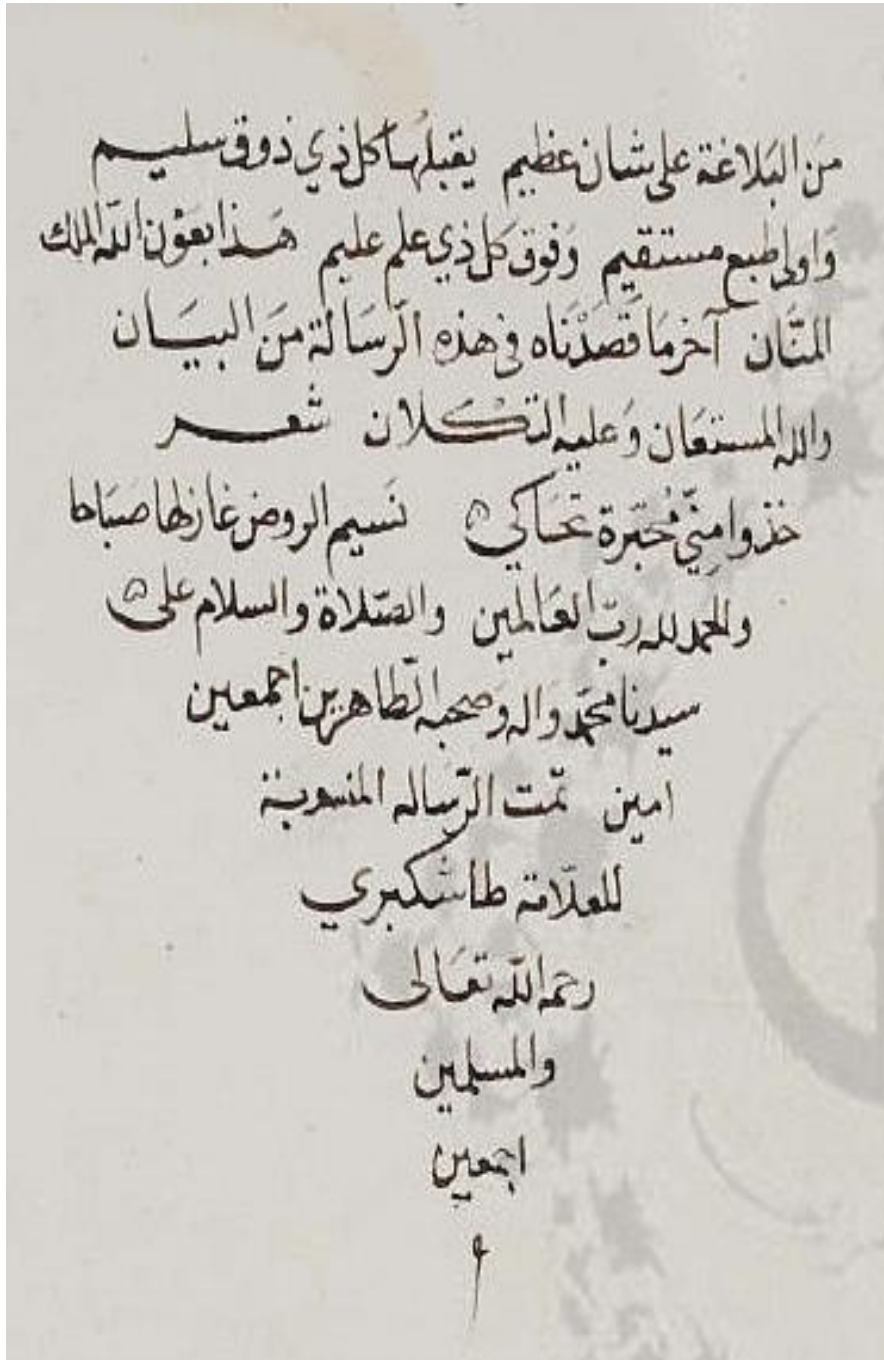 من البَلاغة على شان عظيم يقبلها كل ذي ذوق سليم
وَاولى طبع مستقيم وَفوق كل ذي علم عليم هَذا بعَوْن الله الملك
المنَّان آخر مَا قَصَدْنَاه في هذه الرّسَالة مَن البيَان
والله المستعَان وَعليه التكلان شعر
خذوا مِنِّي مُحَبّرة تحَاكي نَسيم الروض غازلها صبَاحا
والحمد لله ربّ العَالمين والصّلاة والسلام على
سيدنا محمّد واله وَصحبه الطّاهرين اجمعين
امين تمّت الرّساله المنسوبة
للعلّامة طاشكبري
رحمه الله تعَالى
والمسلمين
اجمعين
م